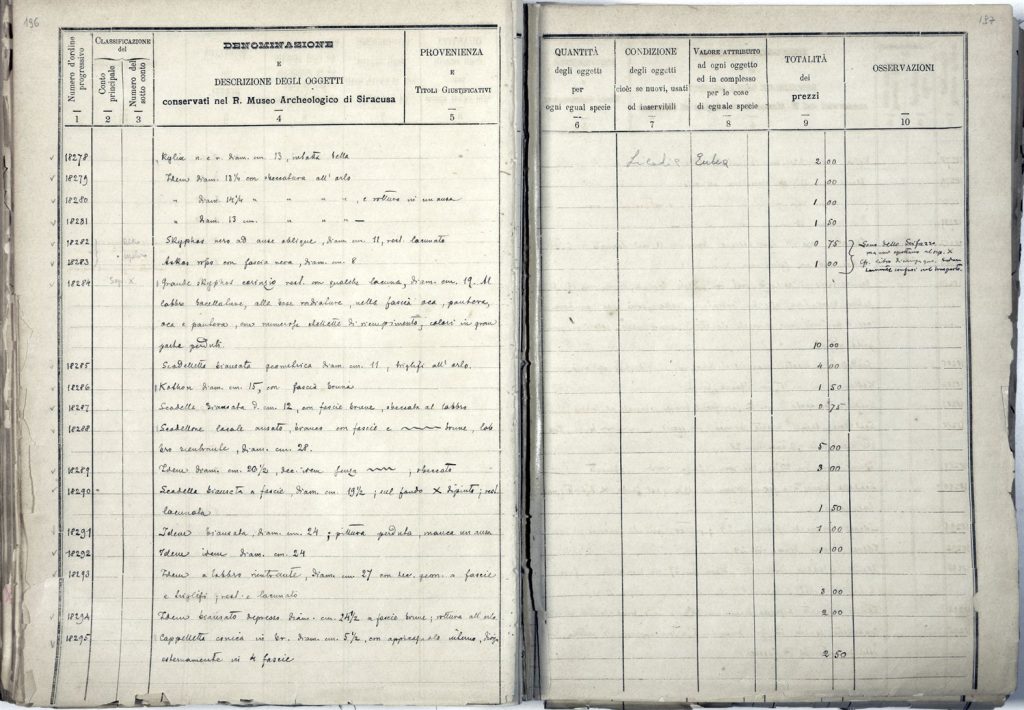 196
Numero d'ordine progressivo
CLASSIFICAZIONE del
Conto principale
Numero del sotto conto
DENOMINAZIONE
E
DESCRIZIONE DEGLI OGGETTI
conservati nel R. Museo Archeologico di Siracusa
PROVENIENZA
E
TITOLI GIUSTIFICATIVI
1 2 3 4 5
18278 Kylix a v. n. diam. cm. 13, restata bella
18279 Idem diam. 13½ con sbeccatura all' orlo
18280 " diam. 14½ " " " ", e rottura in un' ansa
18281 " diam. 13 cm. " " " —
18282 Skyphos nero ad anse oblique, diam. cm. 11, rest. lacunato
18283 Askos con fascia nera, diam. cm. 8
18284 Sep. X Grande skyphos corinzio rest. con qualche lacuna, diam. cm. 19. Al
labbro baccellature, alla base radiature, nella fascia oca, pantera,
oca e pantera, con numerose di riempimento; colori in gran
parte perduti.
18285 Scodelletta biansata geometrica diam. cm. 11, triglifi all' orlo.
18286 Kothon diam. cm. 15, con fascia bruna
18287 Scodella biansata d. cm. 12, con fascie brune, sbeccata al labbro
18288 Scodellone locale ansato, bianco con fascie e brune, lab
bro rientrante, diam. cm. 28.
18289 Idem diam. cm. 20½, dec. idem senza , sbeccato
18290 Scodella biansata a fascie, diam. cm. 19½; sul fondo X dipinto; rest.
lacunata
18291 Idem biansata, diam. cm. 24; pittura perduta, manca un' ansa
18292 Idem idem diam. cm. 24
18293 Idem a labbro rientrante, diam. cm. 27 con dec. geom. a fascie
e triglifi; rest. e lacunato
18294 Idem biansato depresso diam. cm. 24½ a fascie brune; rottura all' orlo
18295 Cappelletto conico in br. diam. cm. 5½, con interno,
esternamente in 4 fascie
197
QUANTITÀ
degli oggetti
per
ogni egual specie
CONDIZIONE
degli oggetti
cioè: se nuovi, usati
od inservibili
VALORE ATTRIBUITO
ad ogni oggetto
ed in complesso
per le cose
di eguale specie
TOTALITÀ
dei
prezzi
OSSERVAZIONI
6 7 8 9 10
Licodia Eubea 2 00
1 00
1 00
1 50
0 75
1 00
10 00
4 00
1 50
0 75
5 00
3 00
1 50
1 00
1 00
3 00
2 00
2 50